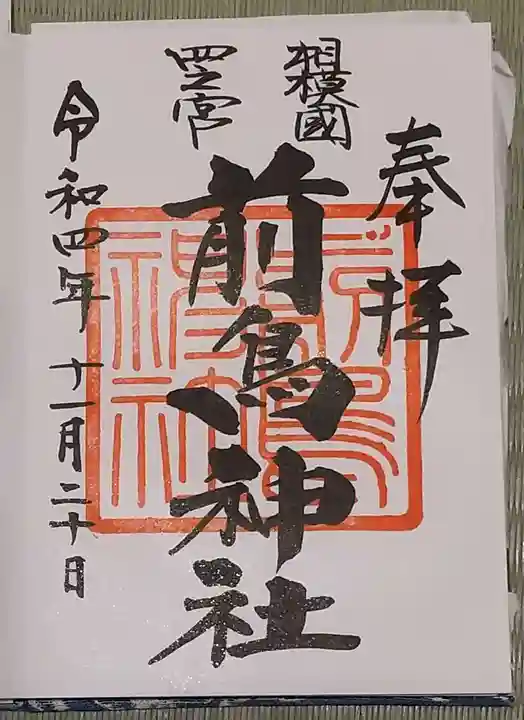 奉拝
相模國
四之宮
前鳥神社
令和四年 十一月二十日